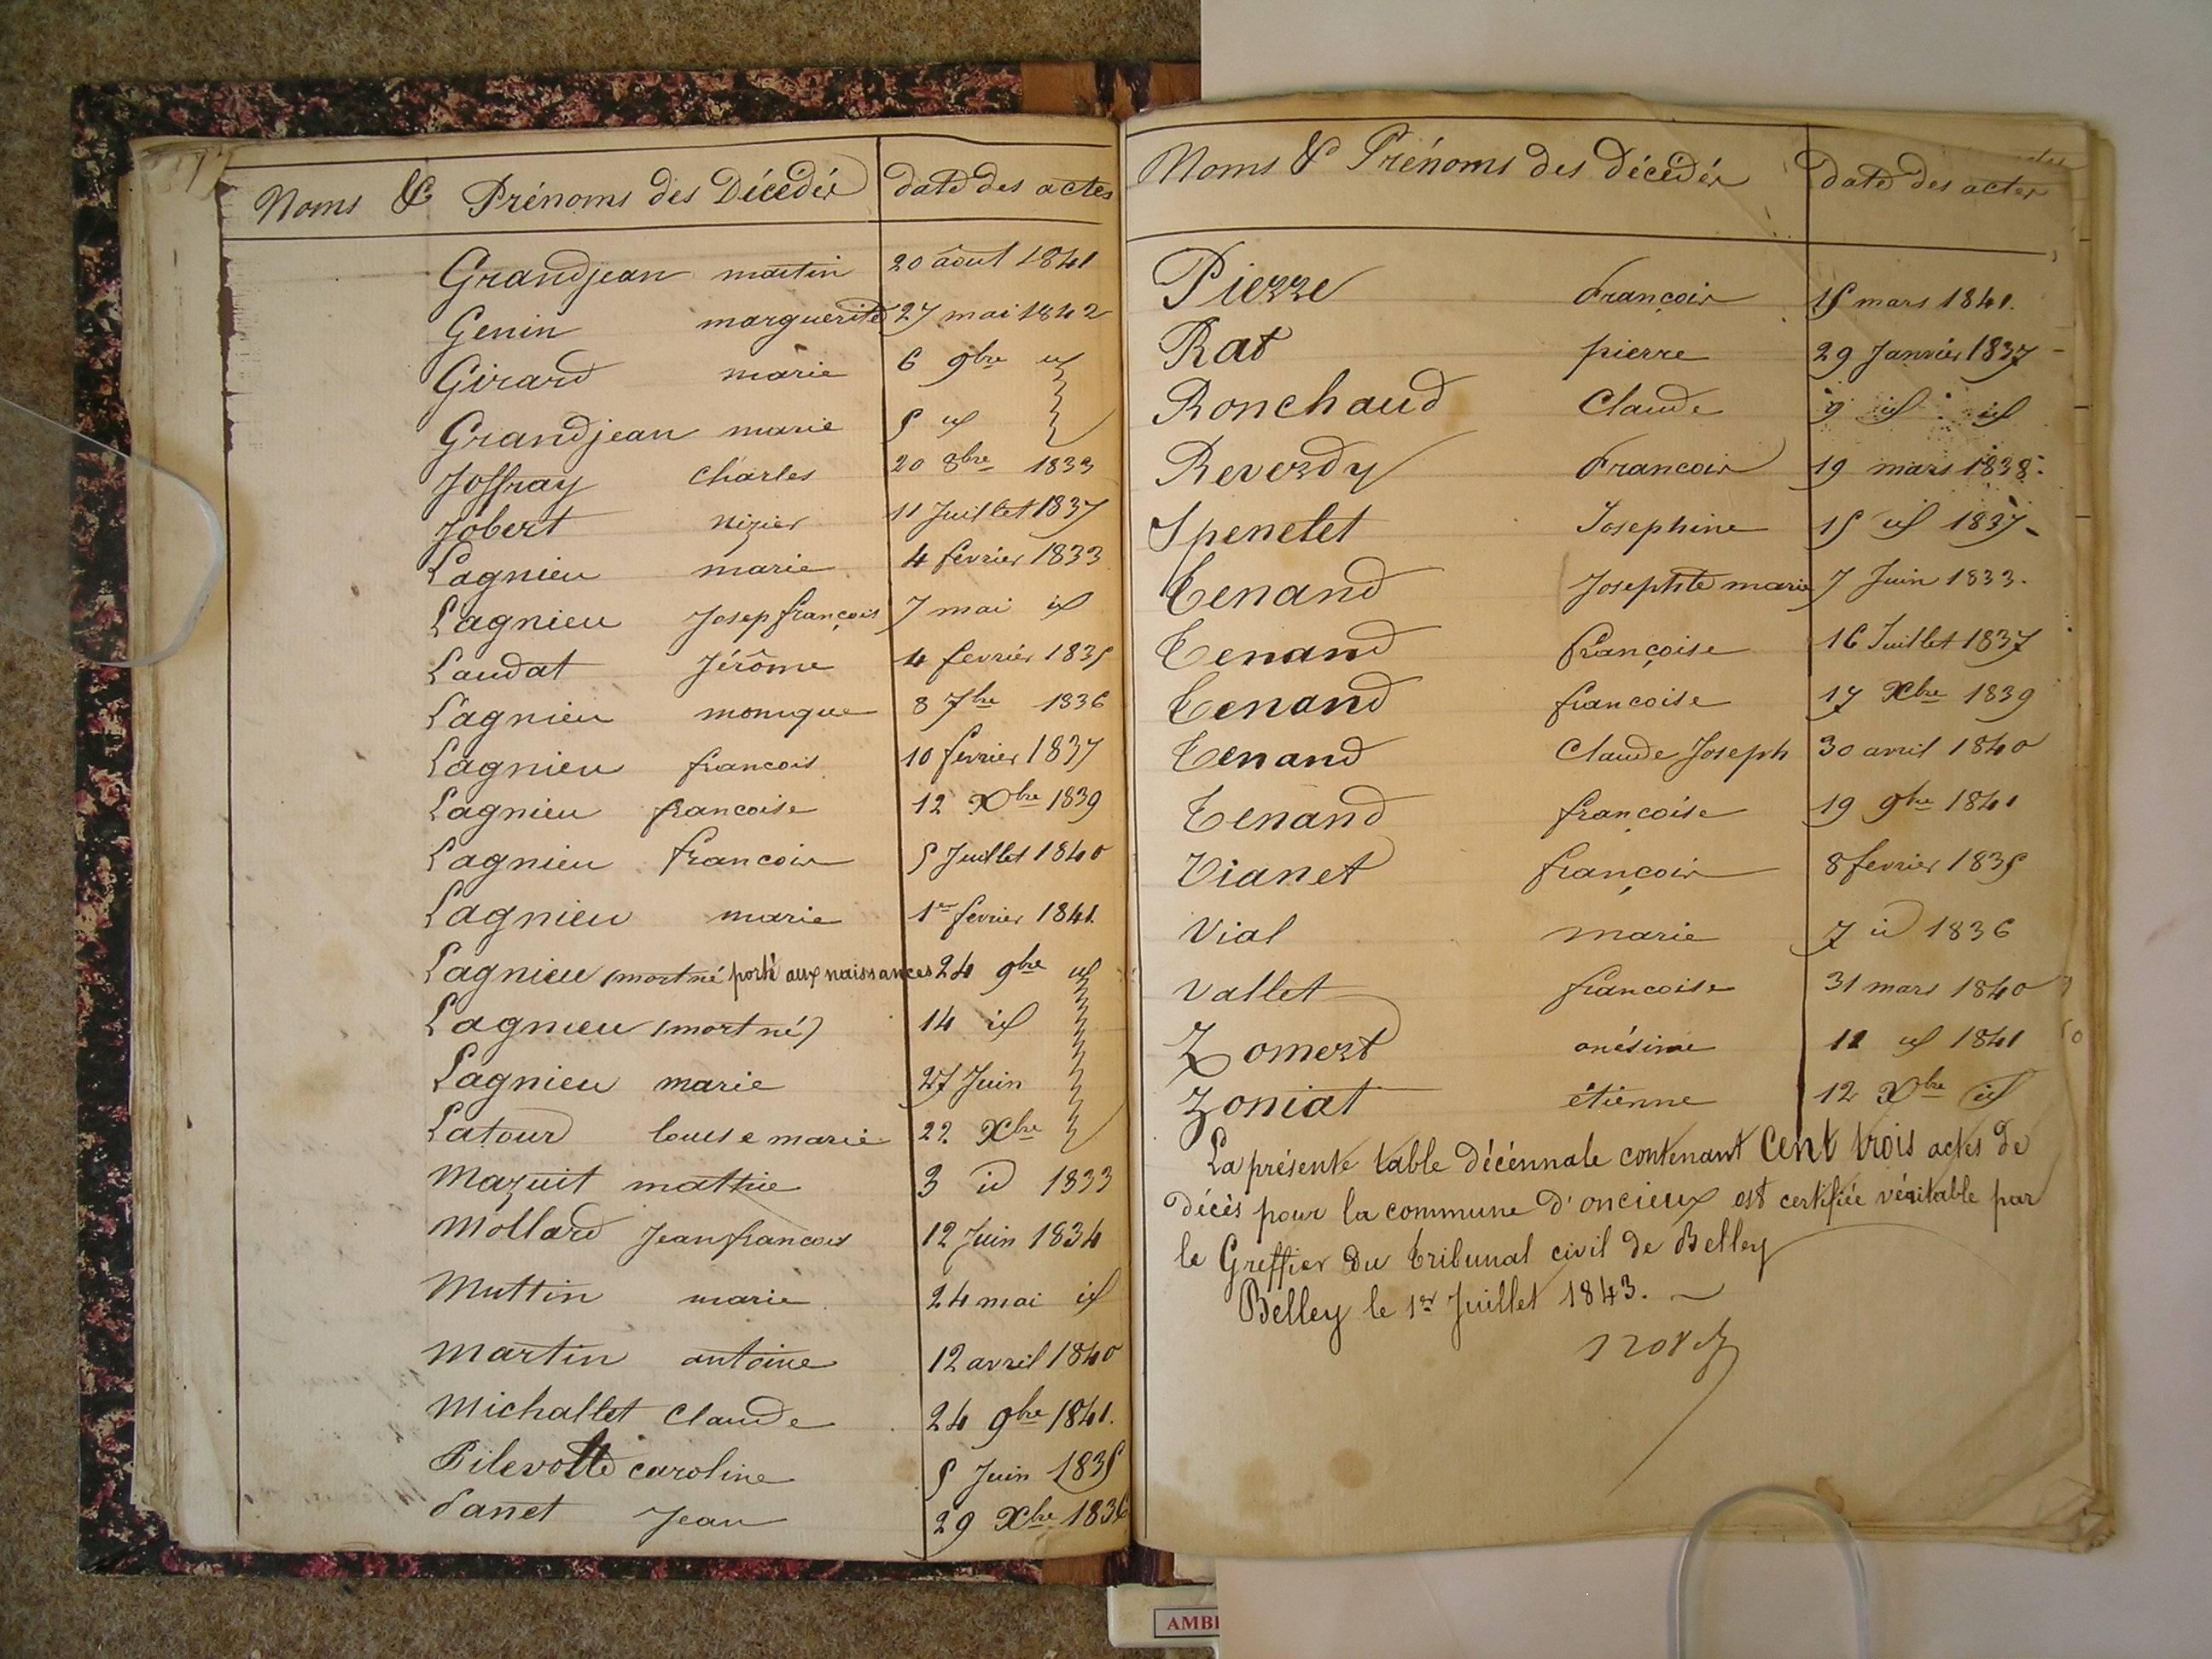 Noms & Prénoms des Décédés date des actes
Grandjean martin 20 août 1841
Genin marguerite 27 mai 1842
Girard marie 6 9bre id
Grandjean marie 5 id
Joffray Charles 20 8bre 1833
Jobert nizier 11 Juillet 1837
Lagnieu marie 4 février 1833
Lagnieu Josep françois 7 mai id
Laudat Jérôme 4 fevrier 1835
Lagnieu monique 8 7bre 1836
Lagnieu francois 10 fevrier 1837
Lagnieu francoise 12 Xbre 1839
Lagnieu francois 5 Juillet 1840
Lagnieu marie 1er fevrier 1841
Lagnieu (mort né porté aux naissances 24 9bre id
Lagnieu (mort né) 14 id
Lagnieu marie 27 Juin
Latour louise marie 22 Xbre
Mazuit mathie 3 id 1833
Mollard Jean francois 12 Juin 1834
Muttin marie 24 mai id
Martin antoine 12 avril 1840
Michallet Claude 24 9bre 1841.
Pilevotte caroline 5 Juin 1835
Panet Jean 29 Xbre 1836
Noms & Prénoms des Décédés date des actes
Pierre françois 15 mars 1841.
Rat pierre 29 Janvier 1837
Ronchaud Claude 9 id id
Reverdy Francois 19 mars 1838.
Spenelet Josephine 15 id 1837
Tenand Josephte marie 7 Juin 1833.
Tenand françoise 16 Juillet 1837
Tenand francoise 17 Xbre 1839
Tenand Claude Joseph 30 avril 1840
Tenand françoise 19 9bre 1841
Vianet françois 8 fevrier 1835
Vial marie 7 id 1836
Vallet francoise 31 mars 1840
Zomert onésime 11 id 1841
Zoniat étienne 12 Xbre id
La présente table décénnale contenant Cent trois actes de
décès pour la commune d'oncieux est certifiée véritable par
le Greffier du tribunal civil de Belley
Belley le 1er Juillet 1843.
AMB